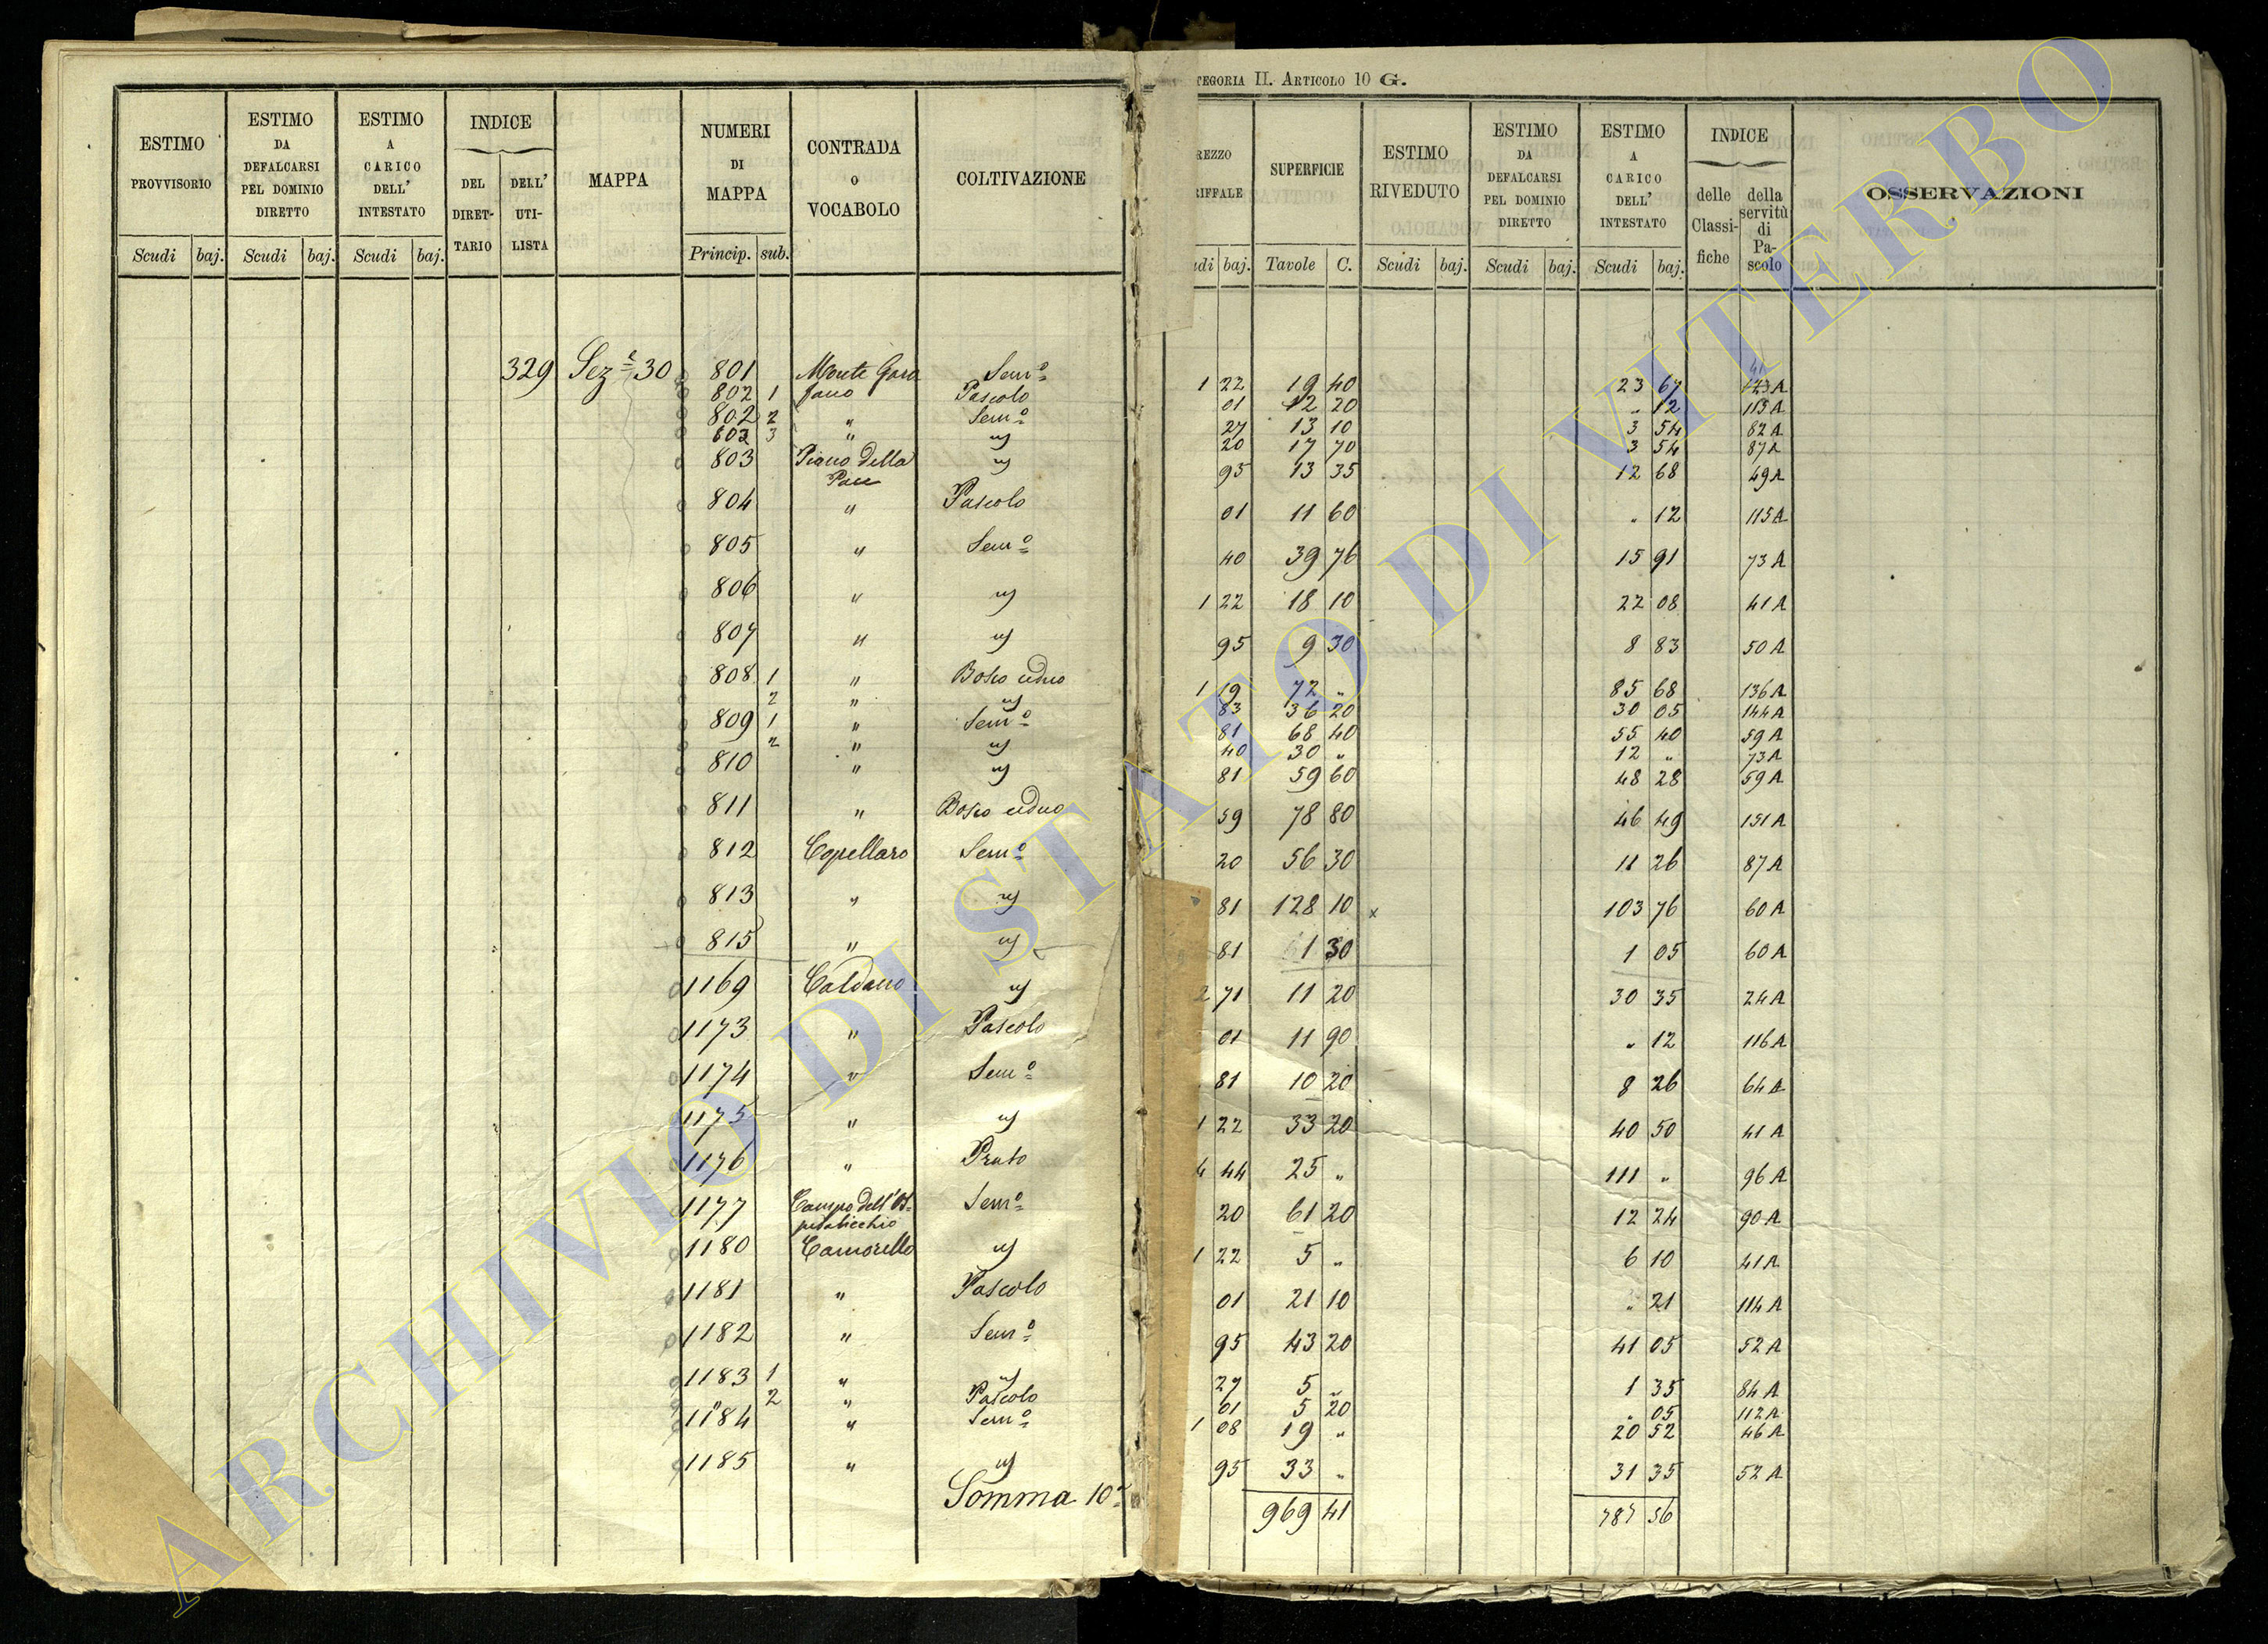 TEGORIA II. ARTICOLO 10 G.
ESTIMO PROVVISORIO Scudi baj.
ESTIMO DA DEFALCARSI PEL DOMINIO DIRETTO Scudi baj.
ESTIMO A CARICO DELL' INTESTATO Scudi baj.
INDICE DEL DIRETTARIO DELL' UTILISTA
MAPPA
NUMERI DI MAPPA Princip. sub.
CONTRADA O VOCABOLO
COLTIVAZIONE
REZZO RIFFALE udi baj.
SUPERFICIE Tavole C.
ESTIMO RIVEDUTO Scudi baj.
ESTIMO DA DEFALCARSI PEL DOMINIO DIRETTO Scudi baj.
ESTIMO A CARICO DELL' INTESTATO Scudi baj.
INDICE delle Classifiche della servitù di Pascolo
OSSERVAZIONI
329 Sez.e 30 801 Monte Gara Sem.o 1 22 19 40 23 67 123 A
802 1 fano Pascolo 01 12 20 " 12 113 A
802 2 " Sem.o 27 13 10 3 54 82 A
802 3 " " 20 17 70 3 54 87 A
803 Piano della Pace " 95 13 35 12 68 49 A
804 " Pascolo 01 11 60 " 12 115 A
805 " Sem.o 40 39 76 15 91 73 A
806 " " 1 22 18 10 22 08 41 A
807 " " 95 9 30 8 83 50 A
808 1 " Bosco ceduo 1 19 72 " 85 68 136 A
2 " " 83 36 20 30 05 144 A
809 1 " Sem.o 81 68 40 55 40 59 A
2 " " 40 30 " 12 " 73 A
810 " " 81 59 60 48 28 59 A
811 " Bosco ceduo 59 78 80 46 49 151 A
812 Copellaro Sem.o 20 56 30 11 26 87 A
813 " " 81 128 10 x 103 76 60 A
815 " " 81 1 30 1 05 60 A
1169 Caldano " 2 71 11 20 30 35 24 A
1173 " Pascolo 01 11 90 " 12 116 A
1174 " Sem.o 81 10 20 8 26 64 A
1175 " " 1 22 33 20 40 50 41 A
1176 " Prato 4 44 25 " 111 " 96 A
1177 Campo dell'Ospedalicchio Sem.o 20 61 20 12 24 90 A
1180 Camorello " 1 22 5 " 6 10 41 A
1181 " Pascolo 01 21 10 " 21 114 A
1182 " Sem.o 95 43 20 41 05 52 A
1183 1 " " 27 5 " 1 35 84 A
2 " Pascolo 01 5 20 " 05 112 A
1184 " Sem.o 1 08 19 " 20 52 46 A
1185 " " 95 33 " 31 35 52 A
Somma 10a 969 41 787 56
ARCHIVIO DI STATO DI VITERBO